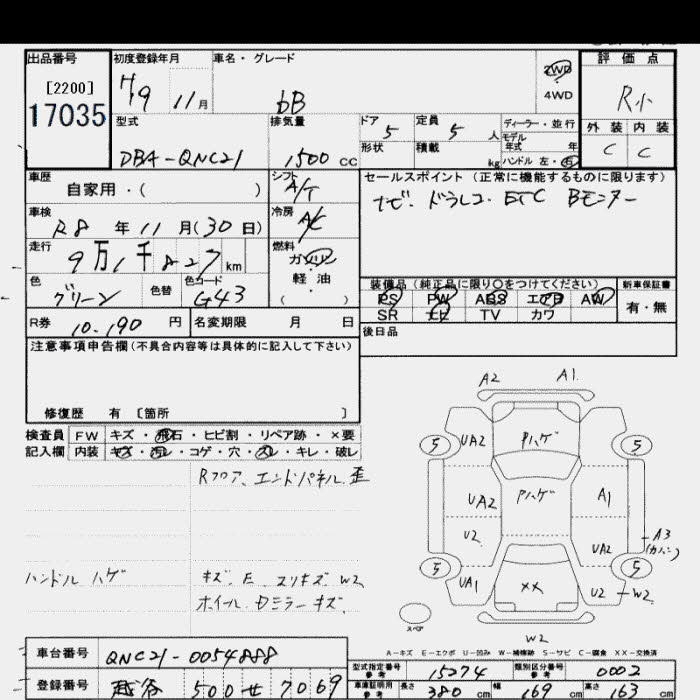 出品番号 初度登録年月 車名・グレード 2WD 4WD 評価点
[2200]
17035
H19 11月 bB R小
型式 排気量 ドア 定員 ディーラー・並行 外装 内装
DBA-QNC21 1500 CC 5 5人 モデル年式 年 C C
形状 積載 kg ハンドル 左・右
車歴 自家用・( ) シフト A/T セールスポイント(正常に機能するものに限ります)
車検 R8年11月(30日) 冷房 A/C ナビ.ドラレコ.ETC Bモニター
走行 9万1千827km 燃料 ガソリン 軽油 ( )
色 グリーン 色替 色コード G43
装備品(純正品に限り○をつけてください) 新車保証書
PS PW ABS エアB AW 有・無
SR ナビ TV カワ
R券 10.190円 名変期限 月 日 後日品
注意事項申告欄(不具合内容等は具体的に記入して下さい)
修復歴 有 [箇所 ]
検査員 FW キズ・飛石・ヒビ割・リペア跡・×要
記入欄 内装 キズ・汚レ・コゲ・穴・スレ・キレ・破レ
Rフロア、エンドパネル.歪
ハンドル ハゲ キズ.E スリキズ W2
ホイール.Dミラー キズ.
A2 A1
5 UA2 Pハゲ 5
UA2 Pハゲ A1
U2 UA2 A3
5 UA1 ×× U2 5 W2
スペア
W2
A-キズ E-エクボ U-凹み W-補修跡 S-サビ C-腐食 XX-交換済
車台番号 QNC21-0054888
型式指定番号 参考 15274 類別区分番号 参考 0002
登録番号 越谷 500 せ 7069
車庫証明用 参考 長さ 380cm 幅 169cm 高さ 163cm